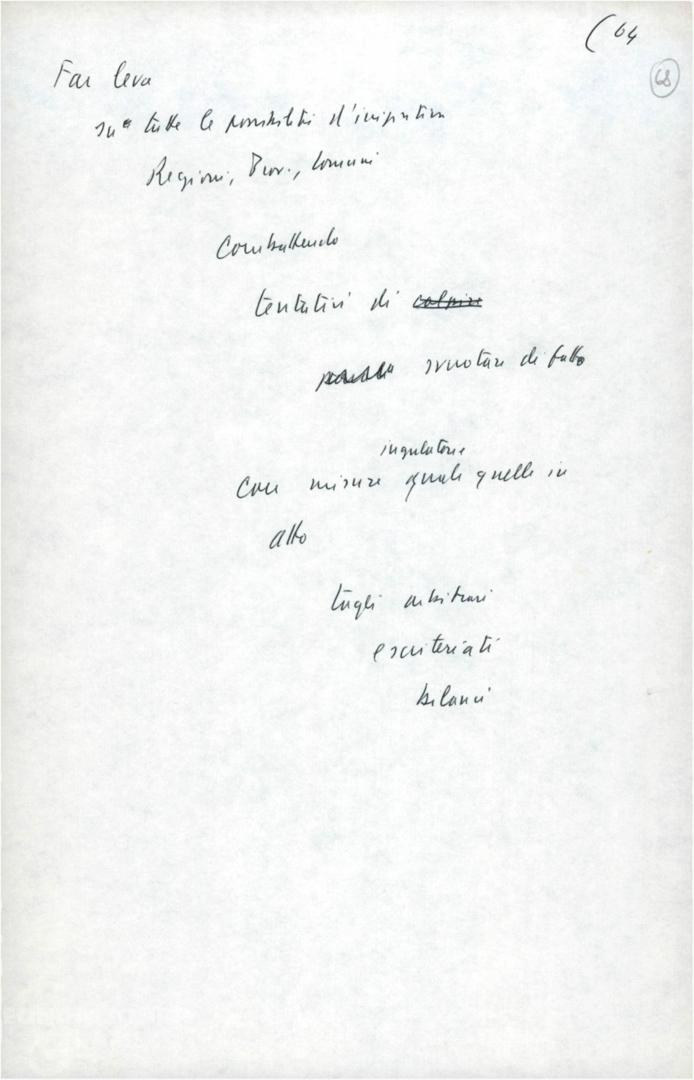 (64
68
Far leva
su tutte le possibilità d'iniziativa
Regioni, Prov., Comuni
Combattendo
tentativi di colpire
svuotare di fatto
iugulatorie
con misure quale quelle in
atto
tagli arbitrari
e scriteriati
bilanci